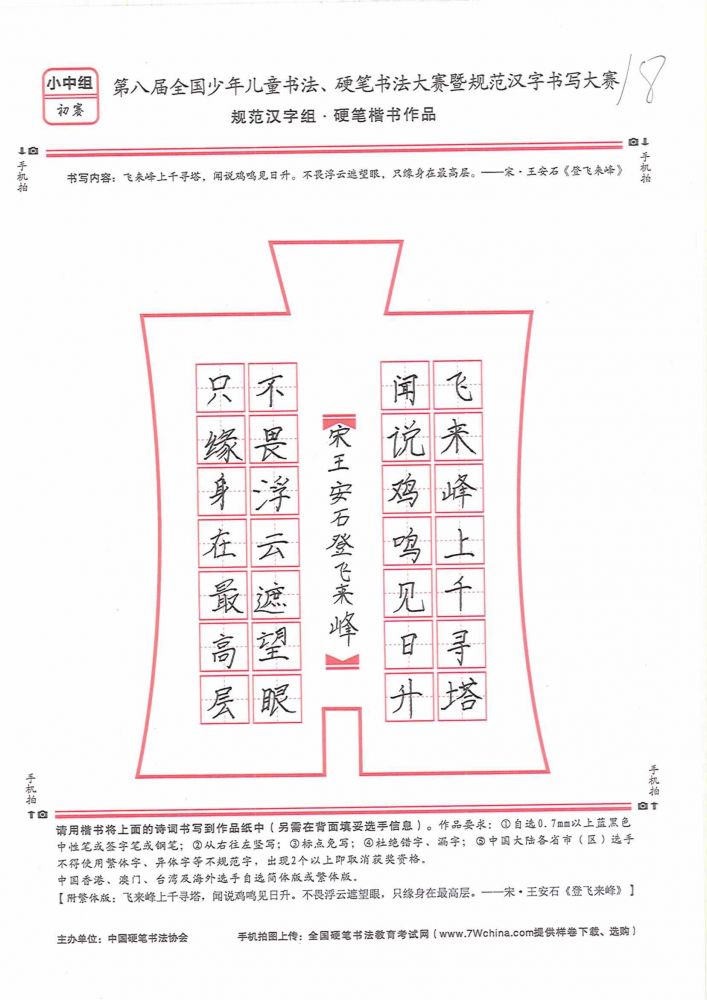 小中组
初赛
第八届全国少年儿童书法、硬笔书法大赛暨规范汉字书写大赛
18
规范汉字组·硬笔楷书作品
手机拍
手机拍
书写内容：飞来峰上千寻塔，闻说鸡鸣见日升。不畏浮云遮望眼，只缘身在最高层。——宋·王安石《登飞来峰》
飞来峰上千寻塔
闻说鸡鸣见日升
宋王安石登飞来峰
不畏浮云遮望眼
只缘身在最高层
手机拍
手机拍
请用楷书将上面的诗词书写到作品纸中（另需在背面填妥选手信息）。作品要求：①自选0.7mm以上蓝黑色
中性笔或签字笔或钢笔；②从右往左竖写；③标点免写；④杜绝错字、漏字；⑤中国大陆各省市（区）选手
不得使用繁体字、异体字等不规范字，出现2个以上即取消获奖资格。
中国香港、澳门、台湾及海外选手自选简体版或繁体版。
【附繁体版：飞来峰上千寻塔，闻说鸡鸣见日升。不畏浮云遮望眼，只缘身在最高层。——宋·王安石《登飞来峰》】
主办单位：中国硬笔书法协会
手机拍图上传：全国硬笔书法教育考试网（www.7Wchina.com提供样卷下载、选购）